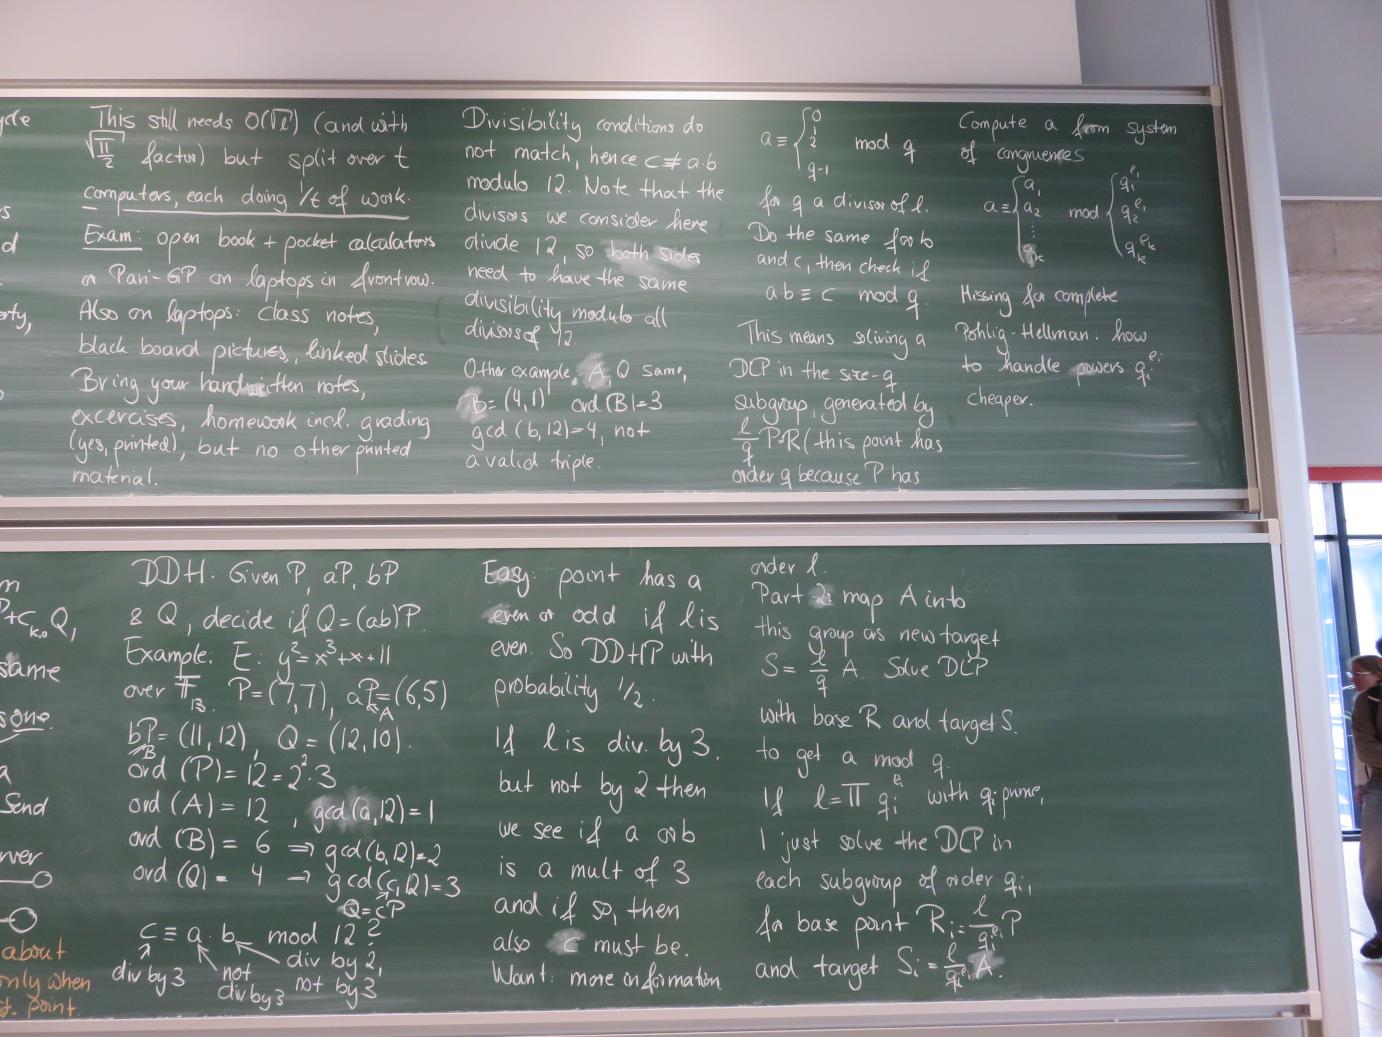 This still needs O(√l) (and with
√π/2 factor) but split over t
computers, each doing 1/t of work.
Exam: open book + pocket calculators
or Pari-GP on laptops in front row.
Also on laptops: class notes,
black board pictures, linked slides.
Bring your handwritten notes,
excercises, homework incl. grading
(yes, printed), but no other printed
material.
Divisibility conditions do
not match, hence c≠a·b
modulo 12. Note that the
divisors we consider here
divide 12, so both sides
need to have the same
divisibility modulo all
divisors of 12.
Other example, A, Q same,
B=(4,1) ord(B)=3
gcd(b,12)=4, not
a valid triple.
a≡{0 1 2 q-1 mod q
for q a divisor of l.
Do the same for b
and c, then check if
ab≡c mod q.
This means solving a
DLP in the size-q
subgroup, generated by
l/q P=R (this point has
order q because P has
Compute a from system
of congruences
a≡{a₁ a₂ ⋮ aₖ mod {q₁^e₁ q₂^e₁ qₖ^eₖ
Missing for complete
Pohlig-Hellman: how
to handle powers qᵢ^eᵢ
cheaper.
m
P+cₖ,₀Q,
same
sone.
a
Send
about
only when
st. point
DDH: Given P, aP, bP
& Q, decide if Q=(ab)P.
Example: E: y²=x³+x+11
over F₁₃. P=(7,7), aP=(6,5)
A
bP=(11,12), Q=(12,10).
B
ord(P)=12=2²·3
ord(A)=12, gcd(a,12)=1
ord(B)=6 ⇒ gcd(b,12)=2
ord(Q)=4 → gcd(c,12)=3
Q=cP
c≡a·b mod 12?
div by 3 not div by 3 div by 2, not by 3
Easy: point has a
even or odd if l is
even. So DDHP with
probability 1/2.
If l is div. by 3.
but not by 2 then
we see if a or b
is a mult of 3
and if so, then
also c must be.
Want: more information
order l.
Part 2: map A into
this group as new target
S=l/q A. Solve DLP
with base R and target S.
to get a mod q.
If l=Π qᵢ^eᵢ with qᵢ prime,
I just solve the DLP in
each subgroup of order qᵢ,
for base point Rᵢ=l/qᵢ^eᵢ P
and target Sᵢ=l/qᵢ^eᵢ A.